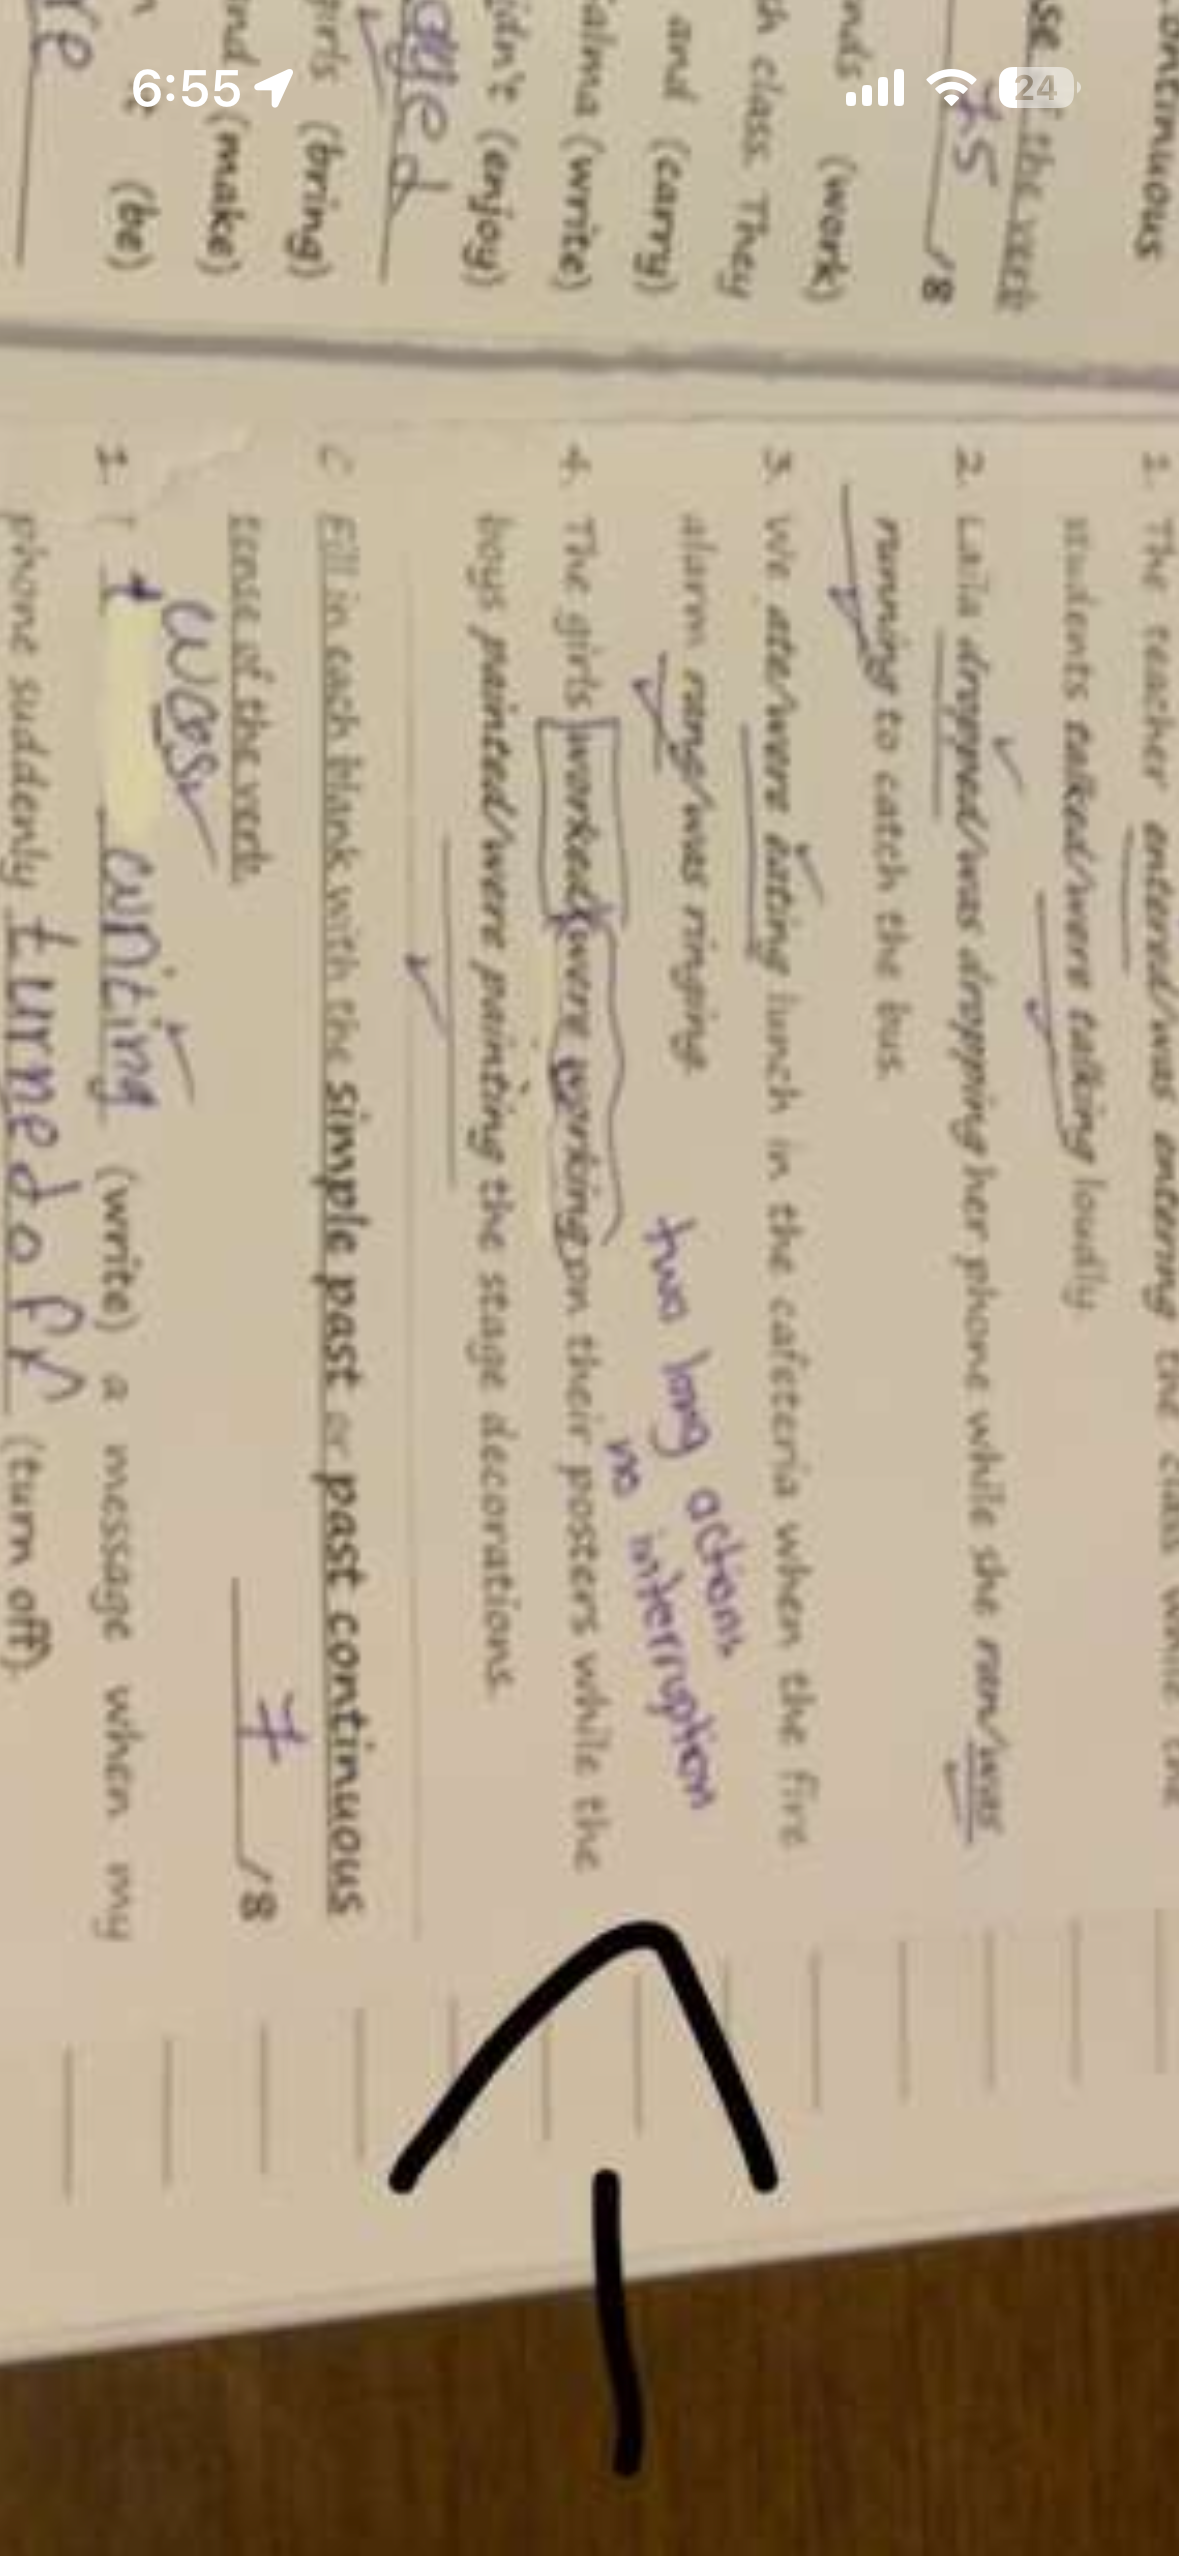 6:55
24
ontinuous
se of the verb
7.5
/8
nds (work)
sh class. They
and (carry)
alma (write)
idn't (enjoy)
girls (bring)
nd (make)
(be)
1. The teacher entered/was entering the class while the
students talked/were talking loudly.
2. Laila dropped/was dropping her phone while she ran/was
running to catch the bus.
3. We ate/were eating lunch in the cafeteria when the fire
alarm rang/was ringing.
two long actions
no interruption
4. The girls worked/were working on their posters while the
boys painted/were painting the stage decorations.
C Fill in each blank with the simple past or past continuous
tense of the verb.
7
/8
was
1. I writing (write) a message when my
phone suddenly turned off (turn off).